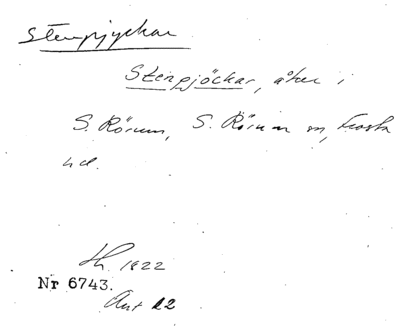 Stenpjyckar
Stenpjöckar, åker i
S. Rörum, S. Rörum sn, Frosta
hd.
Lh. 1822
Nr 6743.
Avt 22